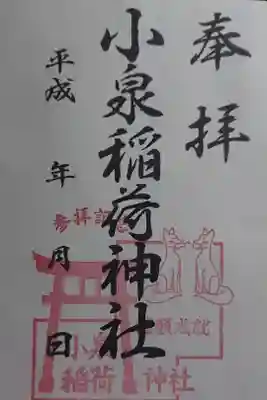 奉拝
小泉稲荷神社
平成 年 月 日
参拝記念
小泉
稲荷 神社